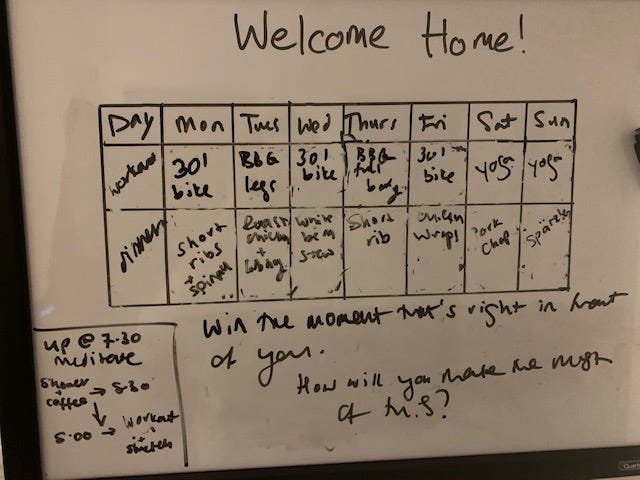 Welcome Home!
Day Mon Tues Wed Thurs Fri Sat Sun
workout 301 bike BBG legs 301 bike BBG full body 301 bike yoga yoga
dinner short ribs + roast chicken + white bean stew short rib chicken wraps pork chop spätzle
win the moment that's right in front
of you.
How will you make the most
of this?
up @ 7:30
meditate
shower + coffee → 8:30
5:00 → workout + stretch
Quartet